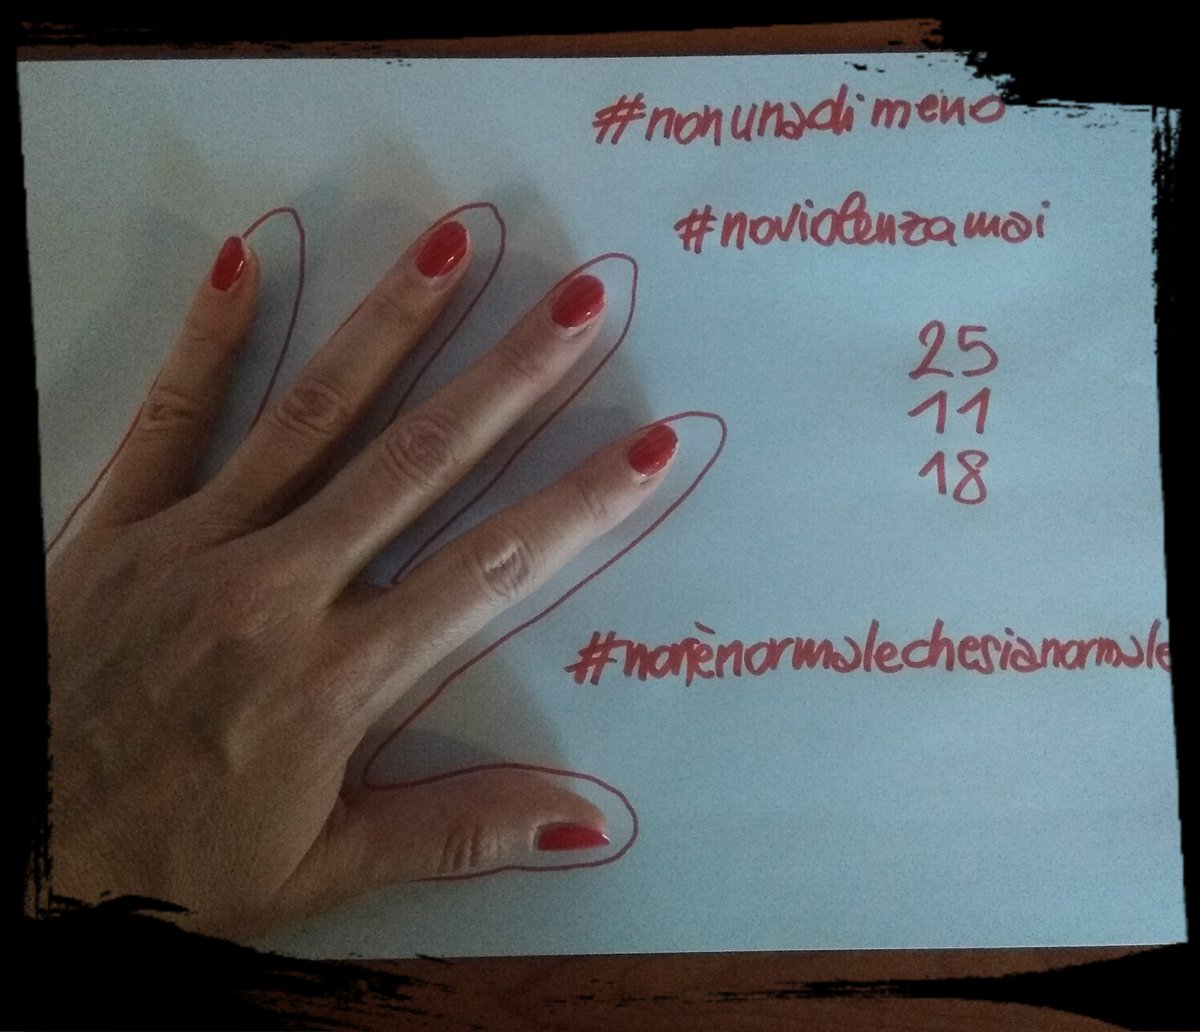 #nonunadimeno
#noviolenzamai
25
11
18
#nonènormalechesianormale